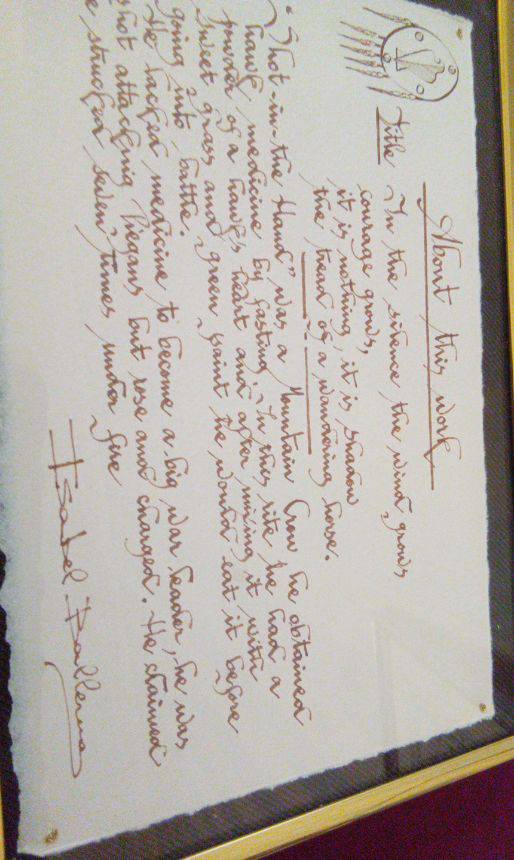 About this work
Title In the silence the wind grows
courage grows,
it is nothing, it is shadow
the tread of a wandering horse.
"Shot-in-the Hand" was a Mountain Crow he obtained
hawk medicine by fasting. In this rite he had a
powder of a hawk's heart and after mixing it with
Sweet grass and green paint he would eat it before
going into battle.
He lacked medicine to become a big war leader, he was
shot attacking Piegans but rose and charged. He claimed
he struck seven times under fire
Isabel